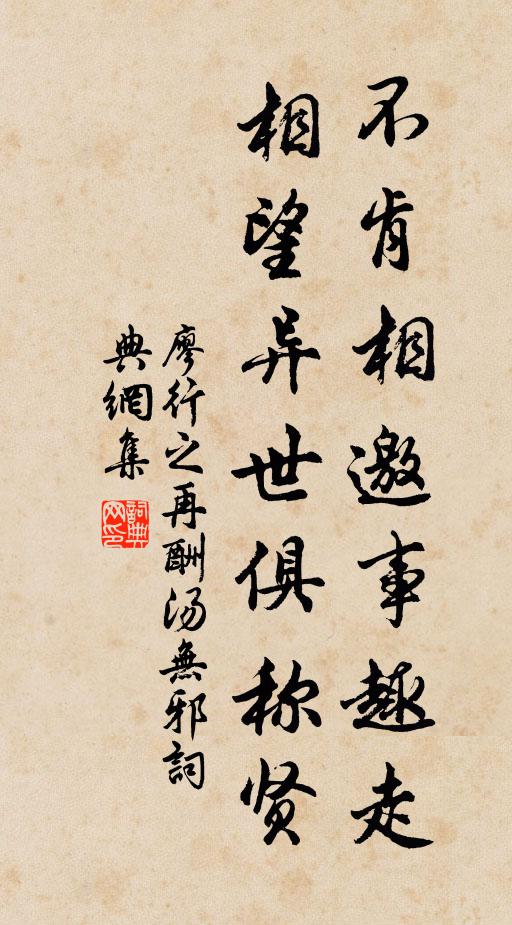 不肯相邀事趣走
相望异世俱称贤
廖行之再酬汤無邪詞
典網集
詞典网印